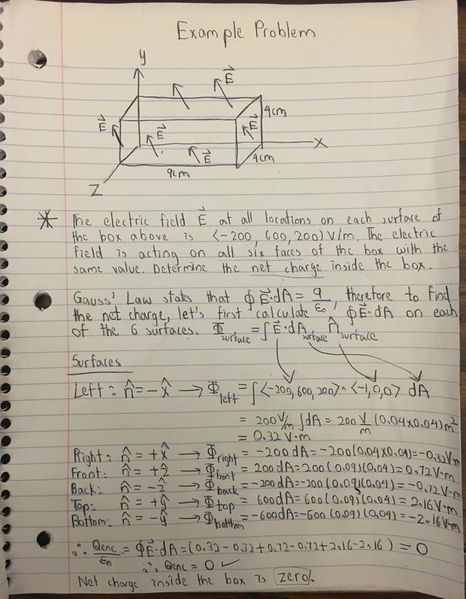 Example Problem
y
E⃗
E⃗
4cm
E⃗
E⃗
E⃗
X
4cm
9cm
Z
* The electric field E⃗ at all locations on each surface of
the box above is <-200, 600, 200> V/m. The electric
field is acting on all six faces of the box with the
same value. Determine the net charge inside the box.
Gauss' Law states that ∮E⃗·dA = q/ε₀, therefore to find
the net charge, let's first calculate ∮E⃗·dA on each
of the 6 surfaces. Φ⃗surface = ∫E⃗·dA surface n̂ surface
Surfaces
Left: n̂ = -x̂ → Φleft = ∫<-200, 600, 200>·<-1,0,0> dA
= 200 V/m ∫dA = 200 V/m (0.04x0.04)m²
= 0.32 V·m
Right: n̂ = +x̂ → Φright = -200dA = -200(0.04x0.04) = -0.32V·m
Front: n̂ = +ẑ → Φfront = 200dA = 200(0.09)(0.04) = 0.72V·m
Back: n̂ = -ẑ → Φback = -200dA = -200(0.09)(0.04) = -0.72V·m
Top: n̂ = +ŷ → Φtop = 600dA = 600(0.09)(0.04) = 2.16V·m
Bottom: n̂ = -ŷ → Φbottom = -600dA = -600(0.09)(0.04) = -2.16V·m
∴ Qenc/ε₀ = ∮E⃗·dA = (0.32-0.32+0.72-0.72+2.16-2.16) = 0
∴ Qenc = 0 ✓
Net charge inside the box is zero.